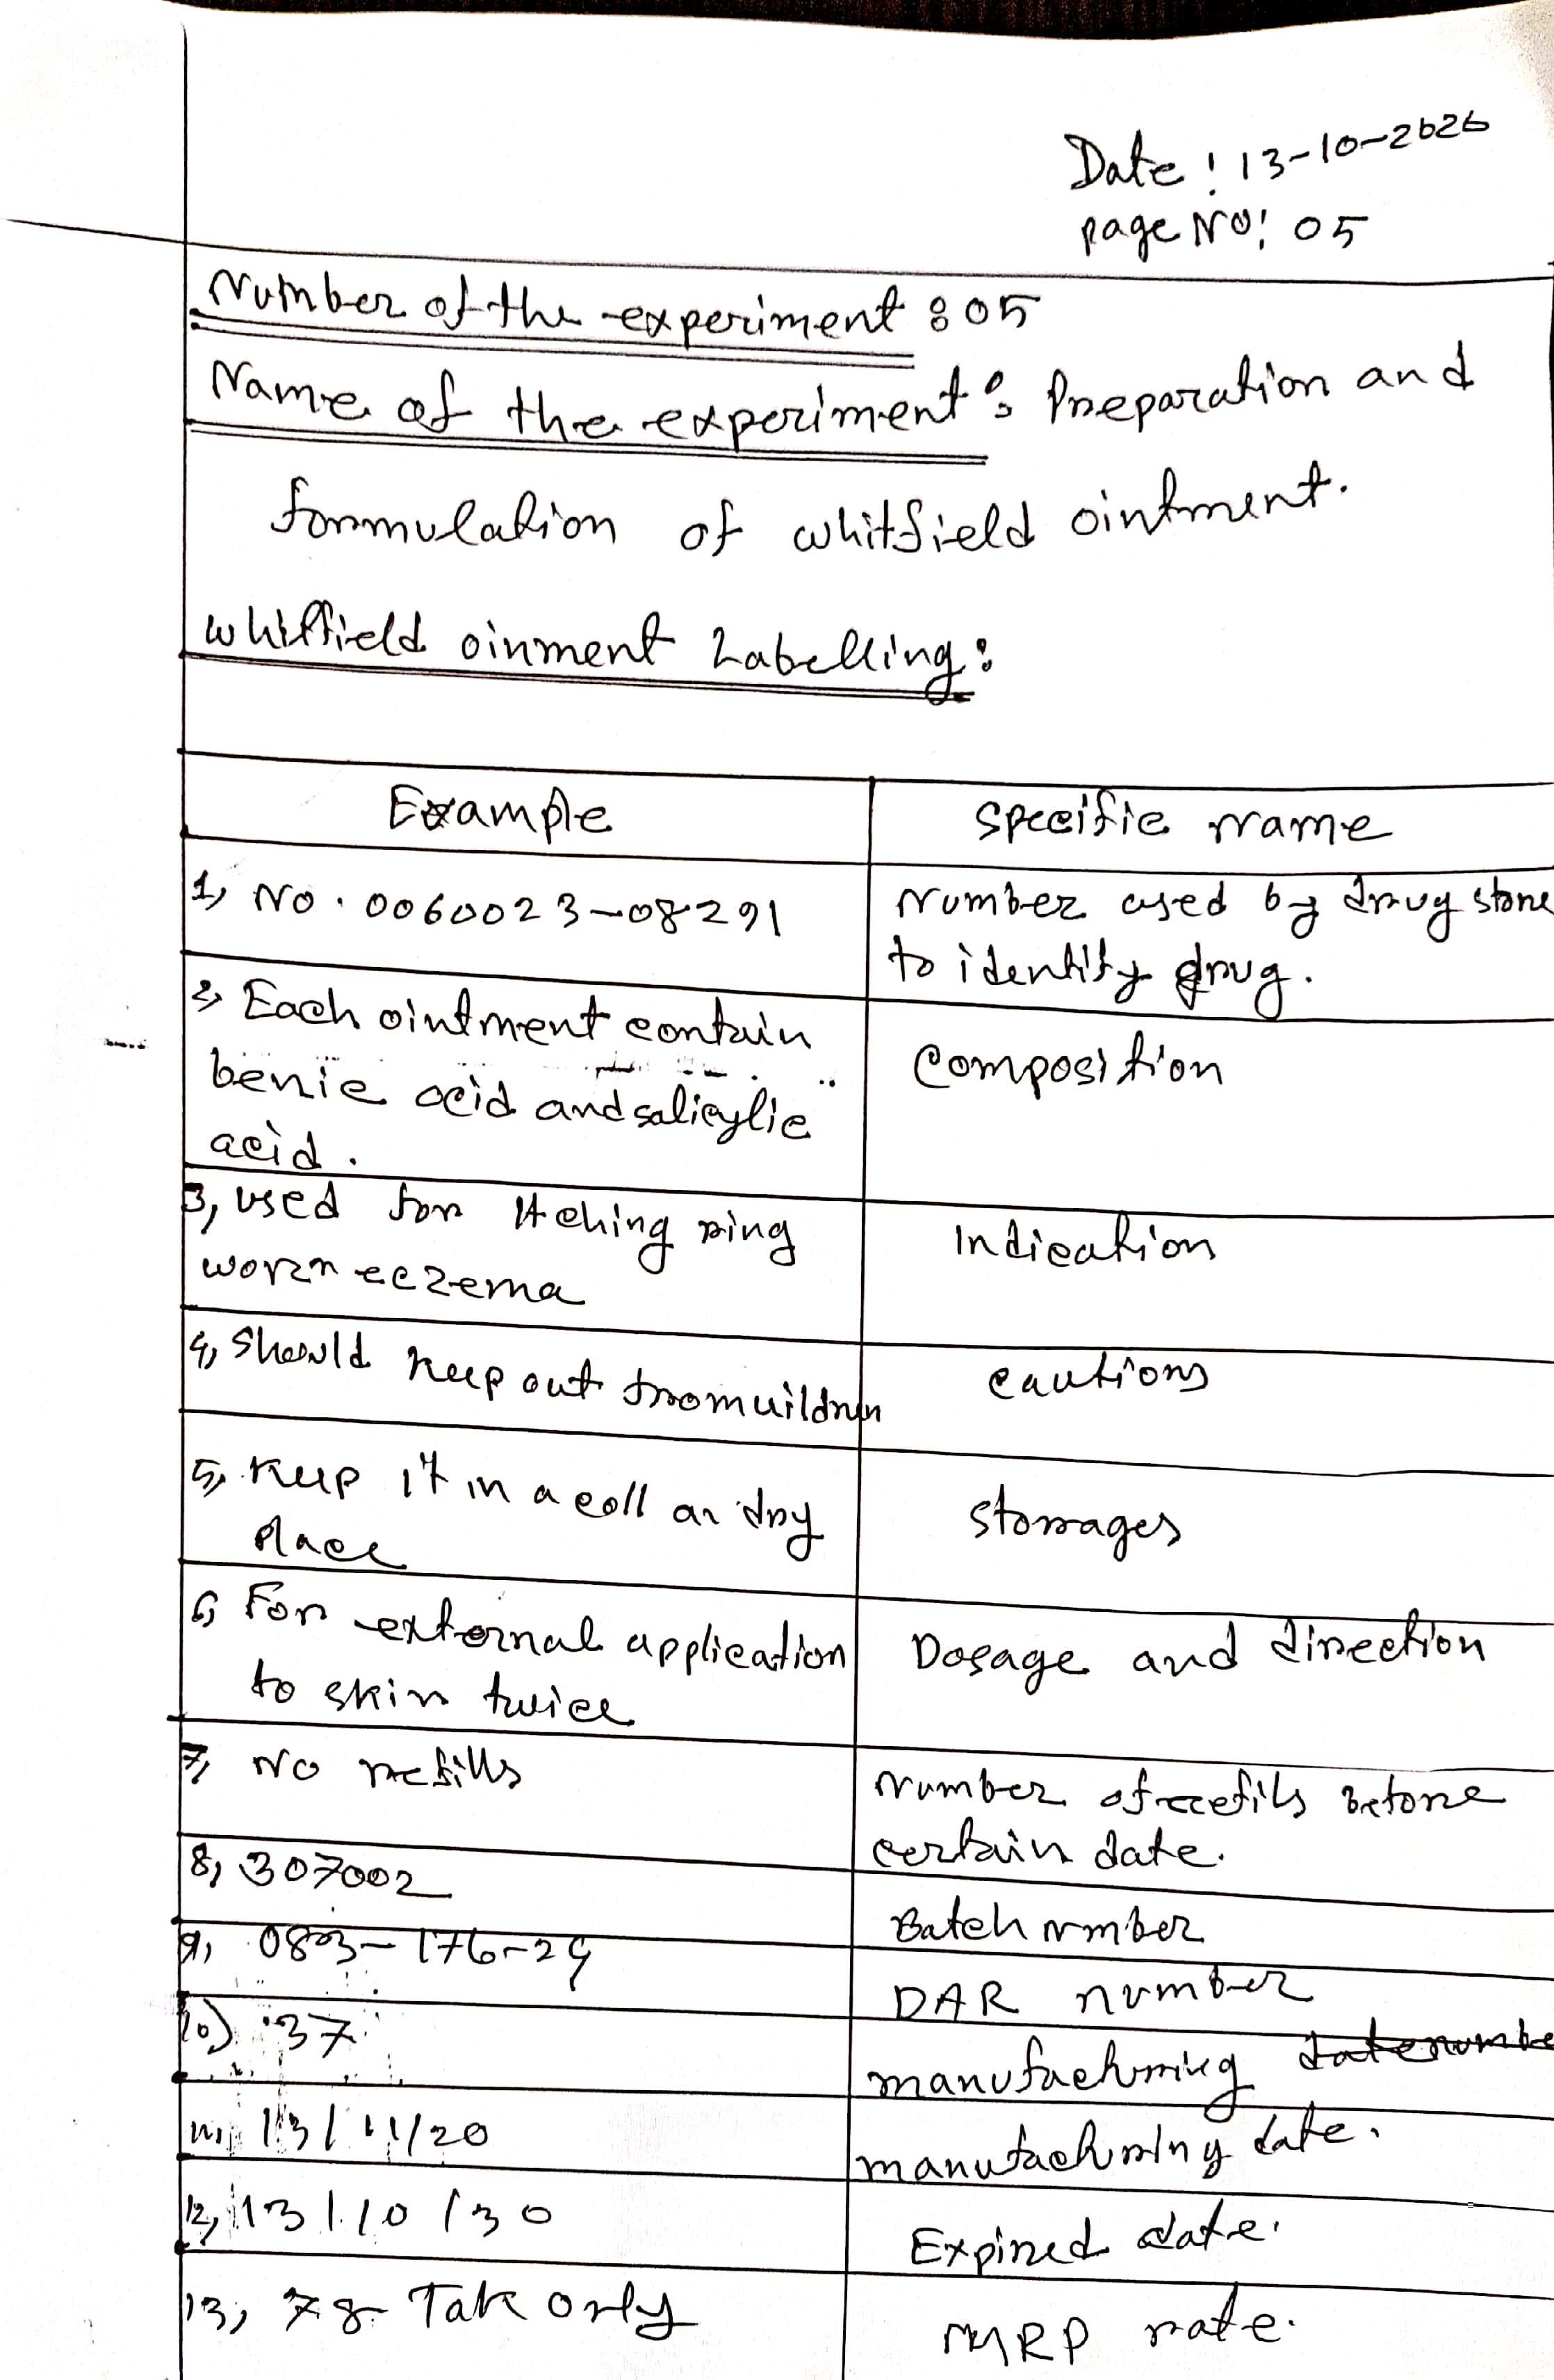 Date : 13-10-2020
page No: 05
Number of the experiment : 05
Name of the experiment : Preparation and
formulation of whitfield ointment.
whitfield oinment Labelling :
Example
specific name
1, No. 0060023-08291
Number used by drug store
to identify drug.
2, Each ointment contain
benic acid and salicylic
acid.
Composition
3, used for Itching ring
worm eczema
Indication
4, Should keep out from
cautions
5, Keep it in a coll or dry
place
storages
6, For external application
to skin twice
Dosage and direction
7, No refills
Number of refils before
certain date.
8, 307002
Batch nmber
9, 083-176-24
DAR number
10) 37
manufacturing
11, 13/11/20
manufacturing date.
12, 13/10/30
Expired date.
13, 78 Tak only
MRP rate.